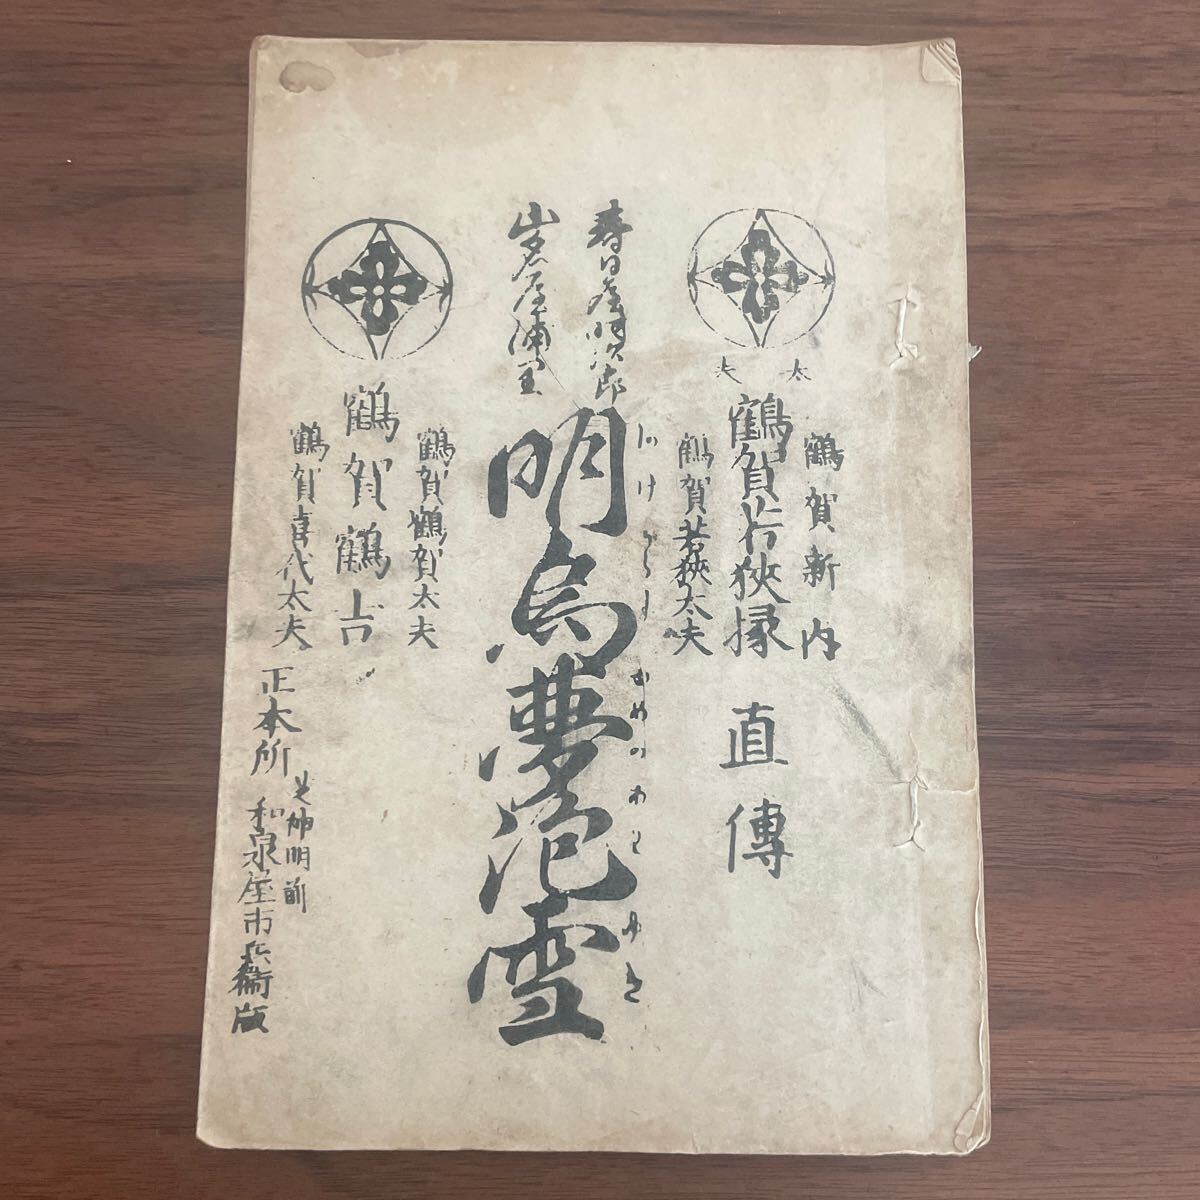 太夫
鶴賀新内
鶴賀若狭掾
鶴賀若狭太夫
直傳
春日屋時次郎
山名屋浦里
あけがらすゆめのあわゆき
明烏夢泡雪
鶴賀鶴賀太夫
鶴賀鶴吉
鶴賀喜代太夫
正本所
芝神明前
和泉屋市兵衛版